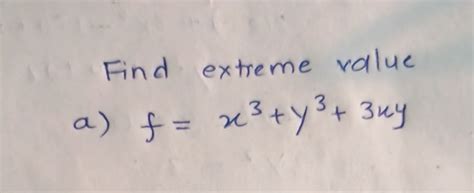 Find extreme value
a) f = x³+y³+ 3xy